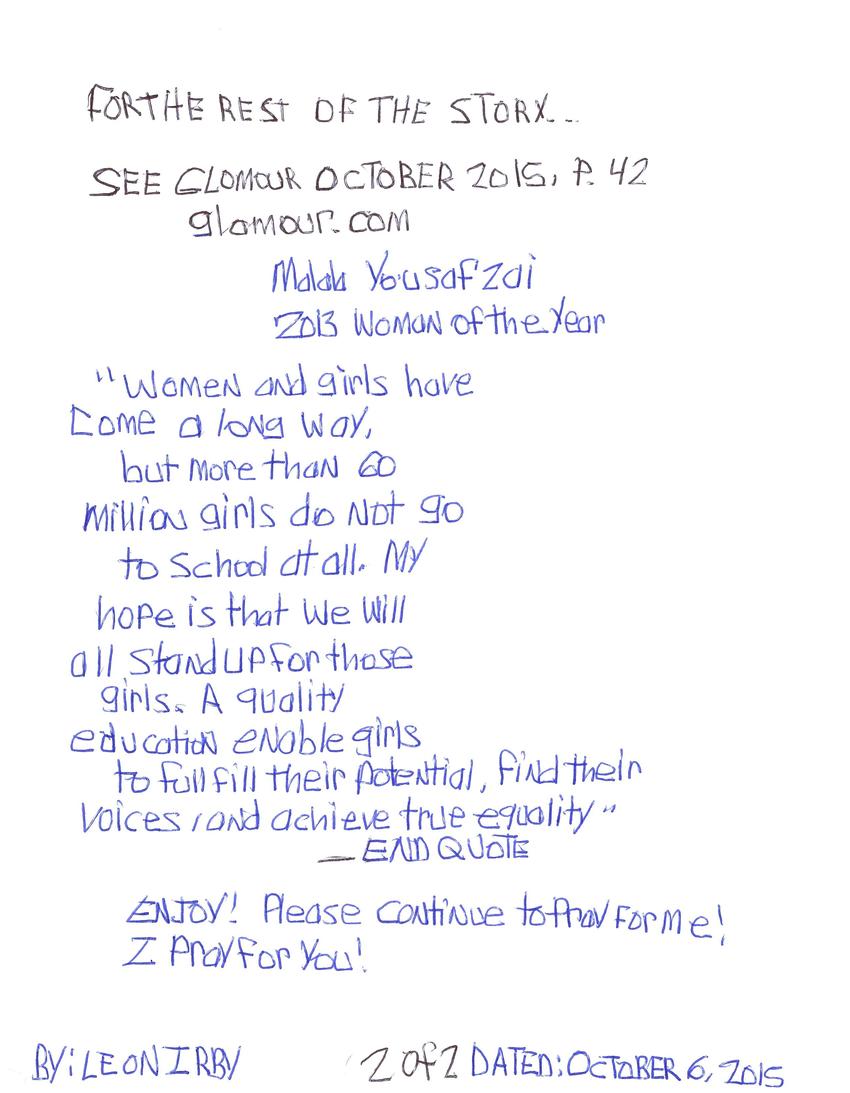 FOR THE REST OF THE STORY...
SEE GLAMOUR OCTOBER 2015, P. 42
glamour.com
Malala Yousafzai
2013 Woman of the Year
"Women and girls have
Come a long way,
but more than 60
million girls do Not go
to School at all. My
hope is that we will
all stand up for those
girls. A quality
education enable girls
to full fill their potential, find their
voices, and achieve true equality"
— END QUOTE
ENJOY! Please continue to Pray For Me!
I Pray For You!
BY: LEON IRBY 2 of 2 DATED: OCTOBER 6, 2015